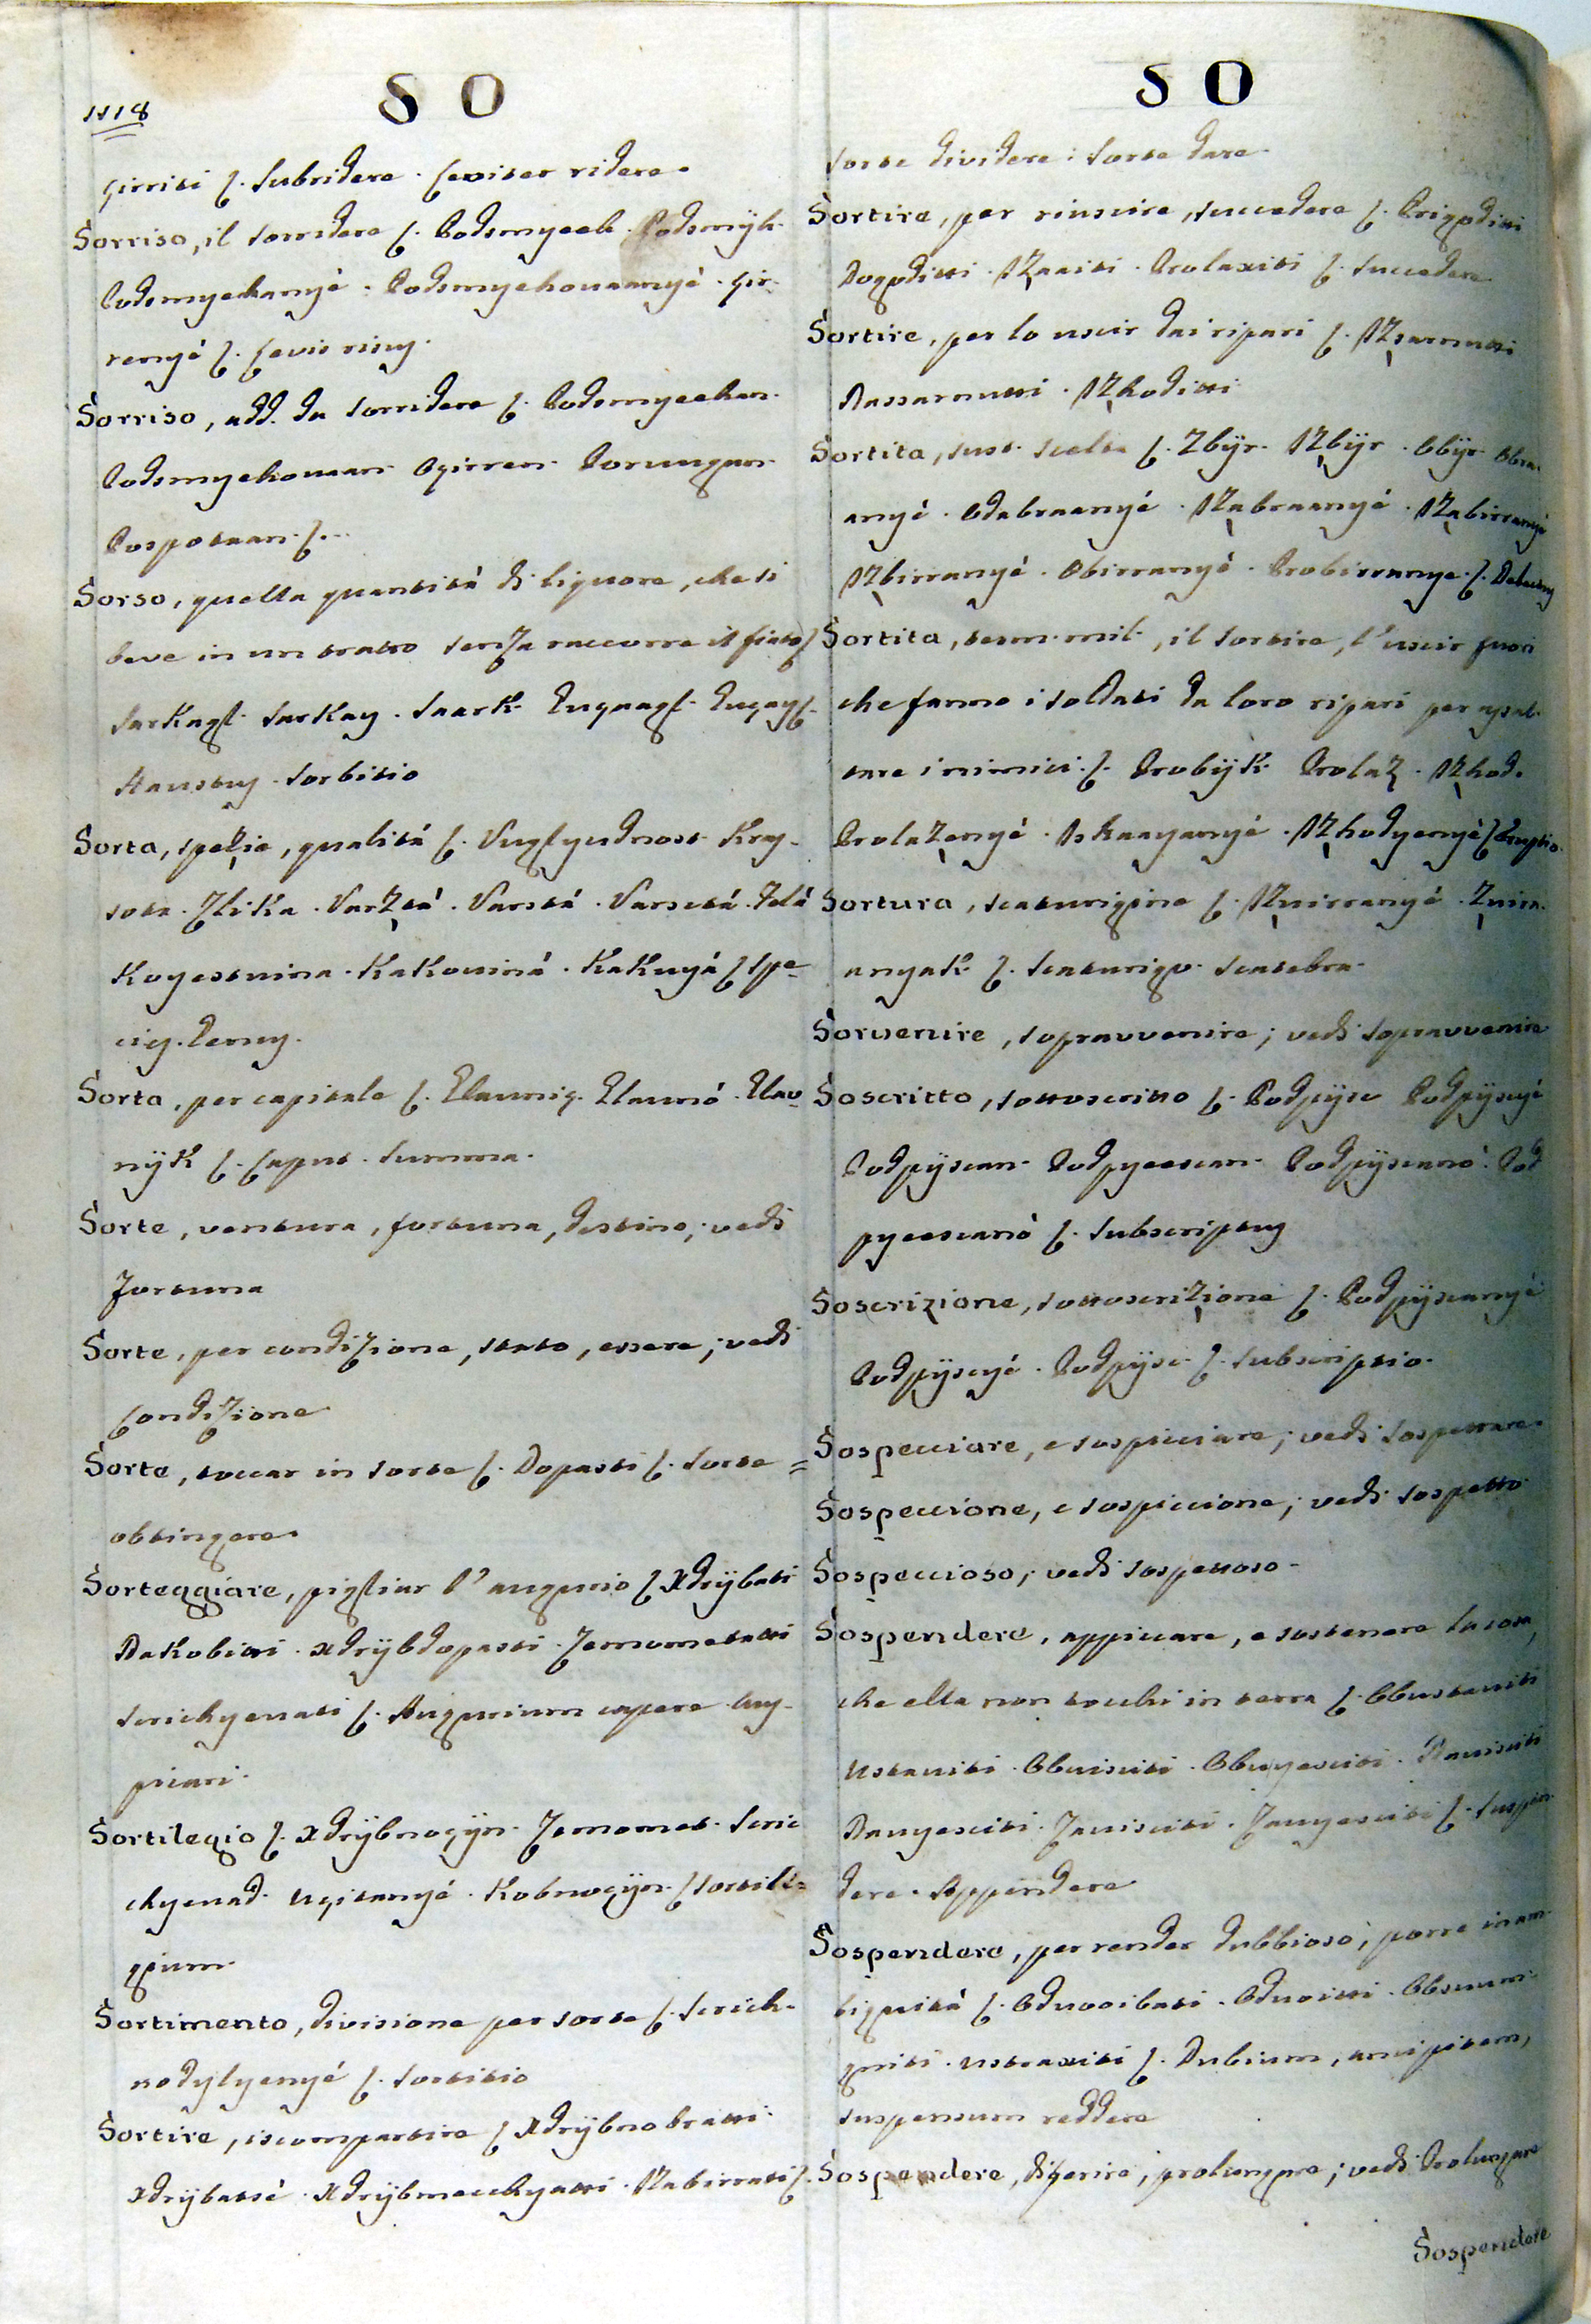 1118
SO
girriti ſ. Subridere. Leviter ridere.
Sorriso, il sorridere ſ. Podsmyeeh. Podsmÿh.
Podsmyehanyé. Podsmyehovaanyé. Gir-
renyé ſ. Levis risus.
Sorriso, add. da sorridere ſ. Podsmyeehan.
Podsmyehovaan. Ogirren. Porungan.
Pospotaan. ſ.
Sorso, quella quantità di liquore, che si
beve in un tratto senza raccorre il fiato ſ
Sarkagl. Sarkay. Saark.
Haustus. Sorbitio
Sorta, spezie, qualità ſ. Vuglyudnost. Kray-
sota. Zlika. Varztá. Varstá. Varsctá. Telá
Koyestvina. Kakovinà. Kakvyá ſ Spe-
cies. Genus.
Sorta, per capitale ſ. Glavniç. Glavnó. Glav-
nÿk ſ. Caput. Summa.
Sorte, ventura, fortuna, destino; vedi
Fortuna
Sorte, per condizione, stato, essere; vedi
Condizione
Sorte, toccar in sorte ſ. Dopasti ſ. Sorte =
obtingere.
Sorteggiare, pigliar l'augurio ſ Xdrÿbati
Nakobitti. Xdrÿbdopasti. Zamometatti
Srichyenati ſ. Augurium capere. Aus-
picari.
Sortilegio ſ. Xdrÿbnoçÿn. Zamomet. Sric
chyenad. Ugitanyé. Kobnoçÿn. ſ Sortile=
gium.
Sortimento, divisione per sorte ſ. Srich-
nodylyenyé ſ. Sortitio
Sortire, iscompartire ſ Xdrÿbnobratti.
Xdrÿbatsé. Xdrÿbmecchyatti. Nabirrati ſ.
SO
Sorte dividere: Sorte dare.
Sortire, per riuscire, succedere ſ. Prigoditti
Dogoditti. Izaaiti. Prolaxiti ſ. Succedere
Sortire, per lo uscir dai ripari ſ. Izsarnutti
Nassarnutti. Izhoditti
Sortita, sust. scelta ſ. Zbÿr. Izbÿr. Obÿr. Obra-
anyé. Odabraanyé. Izabraanyé. Izabirranyé
Izbirranyé. Obirranyé. Probirranye. ſ. Delectus
Sortita, term. mil., il sortire, l'uscir fuori
che fanno i soldati da loro ripari per assal-
tare i nimici. ſ. Probÿk. Prolaz. Izhod.
Prolazenyé. Iskaayanyé. Izhodyenyé ſ Eruptio.
Sortura, scaturigine ſ. Izvirranyé. Zvirra-
anyak ſ. Scaturigo. Scatebra.
Sorvenire, sopravvenire; vedi sopravvenire
Soscritto, sottoscritto ſ. Podpÿsc Podpÿscyé
Podpÿscan. Podpyeescan. Podpÿscanó. Pod
pyeescanò ſ. Subscriptus
Soscrizione, sottoscrizione ſ. Podpÿscanyé
Podpÿscyé. Podpÿsc. ſ. Subscriptio.
Sospecciare, e suspicciare; vedi sospettare.
Sospeccione, e sospiccione; vedi sospetto
Sospeccioso, vedi sospettoso.
Sospendere, appiccare, e sostenere la cosa,
che ella non tocchi in terra ſ. Obustaviti
Ustaviti. Obvisciti. Obvyesciti. Navisciti
Navyesciti. Zavisciti. Zavyesciti ſ. Suspen-
dere. Appendere
Sospendere, per render dubbioso, porre in am-
biguità ſ. Odvooibati. Odvoitti. Obsumn-
gniti. Ustraxiti ſ. Dubium, ancipitem,
suspensum reddere
Sospendere, diferire, prolungare; vedi Prolungare
Sospendere